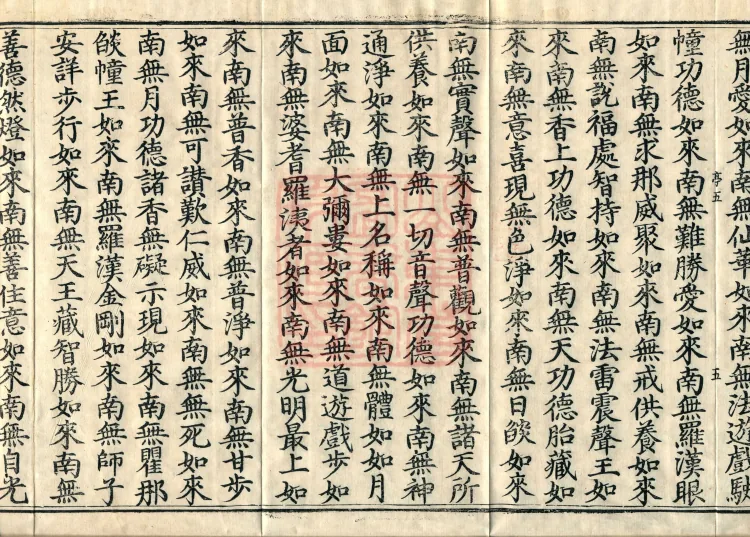 無月愛如來南無仙華如來南無法遊戲駛
亭五
五
幢功德如來南無難勝愛如來南無羅漢眼
如來南無求那威聚如來南無戒供養如來
南無說福處智持如來南無法雷震聲王如
來南無香上功德如來南無天功德胎藏如
來南無意喜現無色淨如來南無日燄如來
南無實聲如來南無普觀如來南無諸天所
供養如來南無一切音聲功德如來南無神
通淨如來南無上名稱如來南無體如如月
面如來南無大彌婁如來南無道遊戲步如
來南無婆耆羅洟者如來南無光明最上如
來南無普香如來南無普淨如來南無甘步
如來南無可讚歎仁威如來南無無死如來
南無月功德諸香無礙示現如來南無瞿那
燄幢王如來南無羅漢金剛如來南無師子
安詳步行如來南無天王藏智勝如來南無
善德然燈如來南無善住意如來南無自光